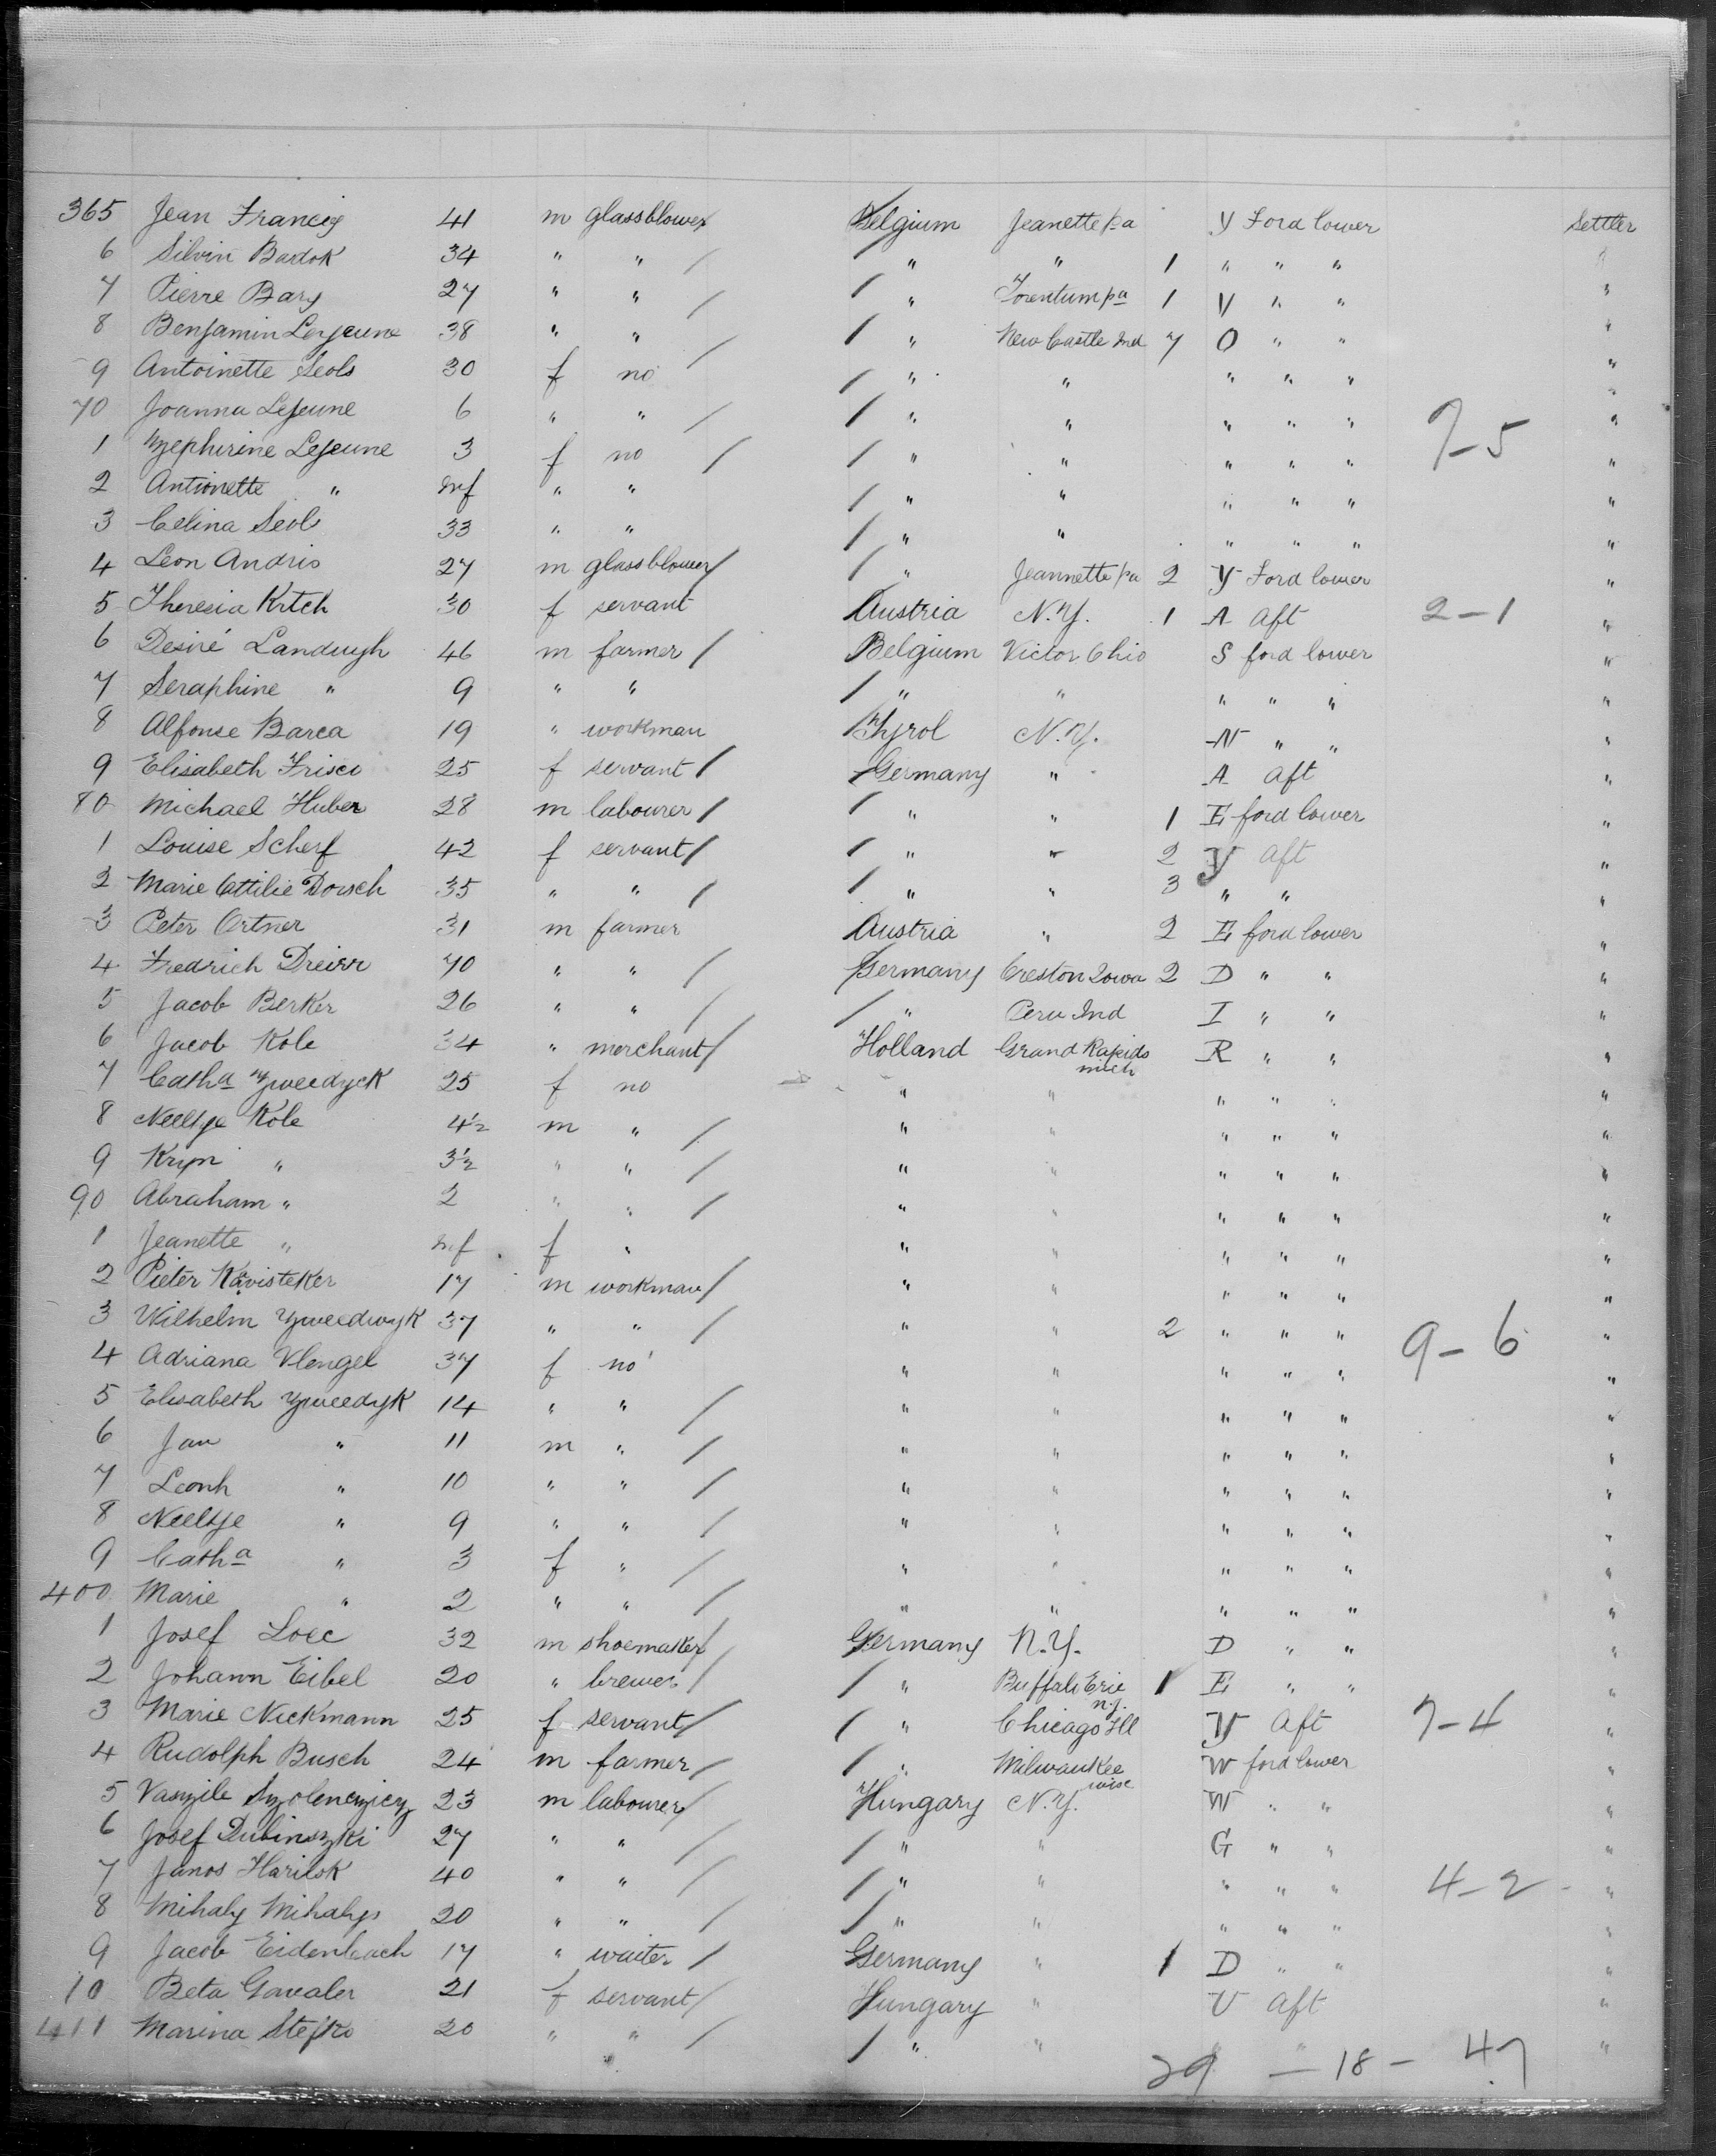 365 Jean Francis 41 m glassblower Belgium Jeanette pa Y Ford lower Settler
6 Silvin Bastok 34 " " / " " 1 " " " "
7 Pierre Bary 27 " " / / " Torentum pa 1 Y " " "
8 Benjamin Lejeune 38 " " / / " New Castle Ind 7 O " " "
9 Antoinette Seols 30 f no / " " " " " "
70 Joanna Lejeune 6 " " / / " " " " " 7-5 "
1 Zephirine Lejeune 3 f no / / " " " " " "
2 Antionette " inf " " / " " " " " "
3 Celina Seols 33 " " / " " " " " "
4 Leon Andris 27 m glassblower / / " Jeannette pa 2 Y Ford lower "
5 Theresia Kitch 30 f servant Austria N.Y. 1 A Aft 2-1 "
6 Desiré Landuyh 46 m farmer / Belgium Victor Ohio S ford lower "
7 Seraphine " 9 " " / " " " " " "
8 Alfonse Barca 19 " workman Tyrol N.Y. N " " "
9 Elisabeth Frisco 25 f servant / Germany " A Aft "
80 Michael Huber 28 m labourer / / " " 1 E ford lower "
1 Louise Scherf 42 f servant / / " " 2 Y Aft "
2 Marie Ottilie Dorsch 35 " " / / " " 3 " " "
3 Peter Ortner 31 m farmer Austria " 2 E ford lower "
4 Fredrich Dreier 70 " " / Germany Creston Iowa 2 D " " "
5 Jacob Berker 26 " " / / " Peru Ind I " " "
6 Jacob Kole 34 " merchant / Holland Grand Rapids mich R " " "
7 Catha Zweedyck 25 f no " " " " " "
8 Neeltje Kole 4½ m " / " " " " " "
9 Kryn " 3½ " " / " " " " " "
90 Abraham " 2 " " / " " " " " "
1 Jeanette " inf f " " " " " " "
2 Pieter Kavisteker 17 m workman / " " " " " "
3 Wilhelm Zweedwyk 37 " " / " " 2 " " " 9-6 "
4 Adriana Vlengel 37 f no " " " " " "
5 Elisabeth Zweedyk 14 " " / " " " " " "
6 Jan " 11 m " / " " " " " "
7 Leonh " 10 " " / " " " " " "
8 Neeltje " 9 " " / " " " " " "
9 Catha " 3 f " / " " " " " "
400 Marie " 2 " " / " " " " " "
1 Josef Loec 32 m shoemaker / Germany N.Y. D " " "
2 Johann Eibel 20 " brewer / / " Buffalo Erie n.y. 1 E " " "
3 Marie Nickmann 25 f servant / / " Chicago Ill Y Aft 7-4 "
4 Rudolph Busch 24 m farmer / / " Milwaukee wisc W ford lower "
5 Vaszile 23 m labourer / Hungary N.Y. W " " "
6 Josef Dubinszki 27 " " / / " " G " " "
7 Janos Harilsk 40 " " / / " " " " " 4-2 - "
8 Mihaly Mihalys 20 " " / / " " " " " "
9 Jacob Eidenbach 17 " waiter / Germany " 1 D " " "
10 Beta Gavaler 21 f servant / Hungary " V Aft "
411 Marina Stefko 20 " " / / " " " " "
29 - 18 - 47